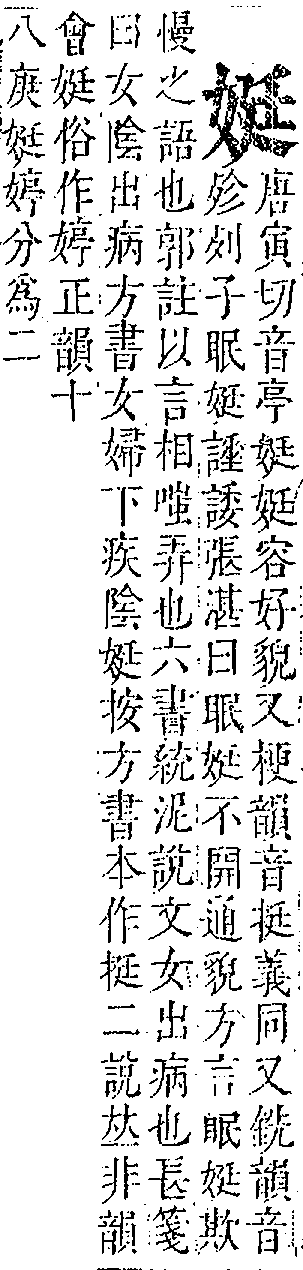 娗
唐寅切音亭娗娗容好貌又梗韻音挺義同又銑韻音
殄列子眠娗諈諉張湛曰眠娗不開通貌方言眠娗欺
慢之語也郭註以言相嗤弄也六書統泥說文女出病也長箋
曰女陰出病方書女婦下疾陰娗按方書本作挺二說𠀤非韻
會娗俗作婷正韻十
八庚娗婷分爲二